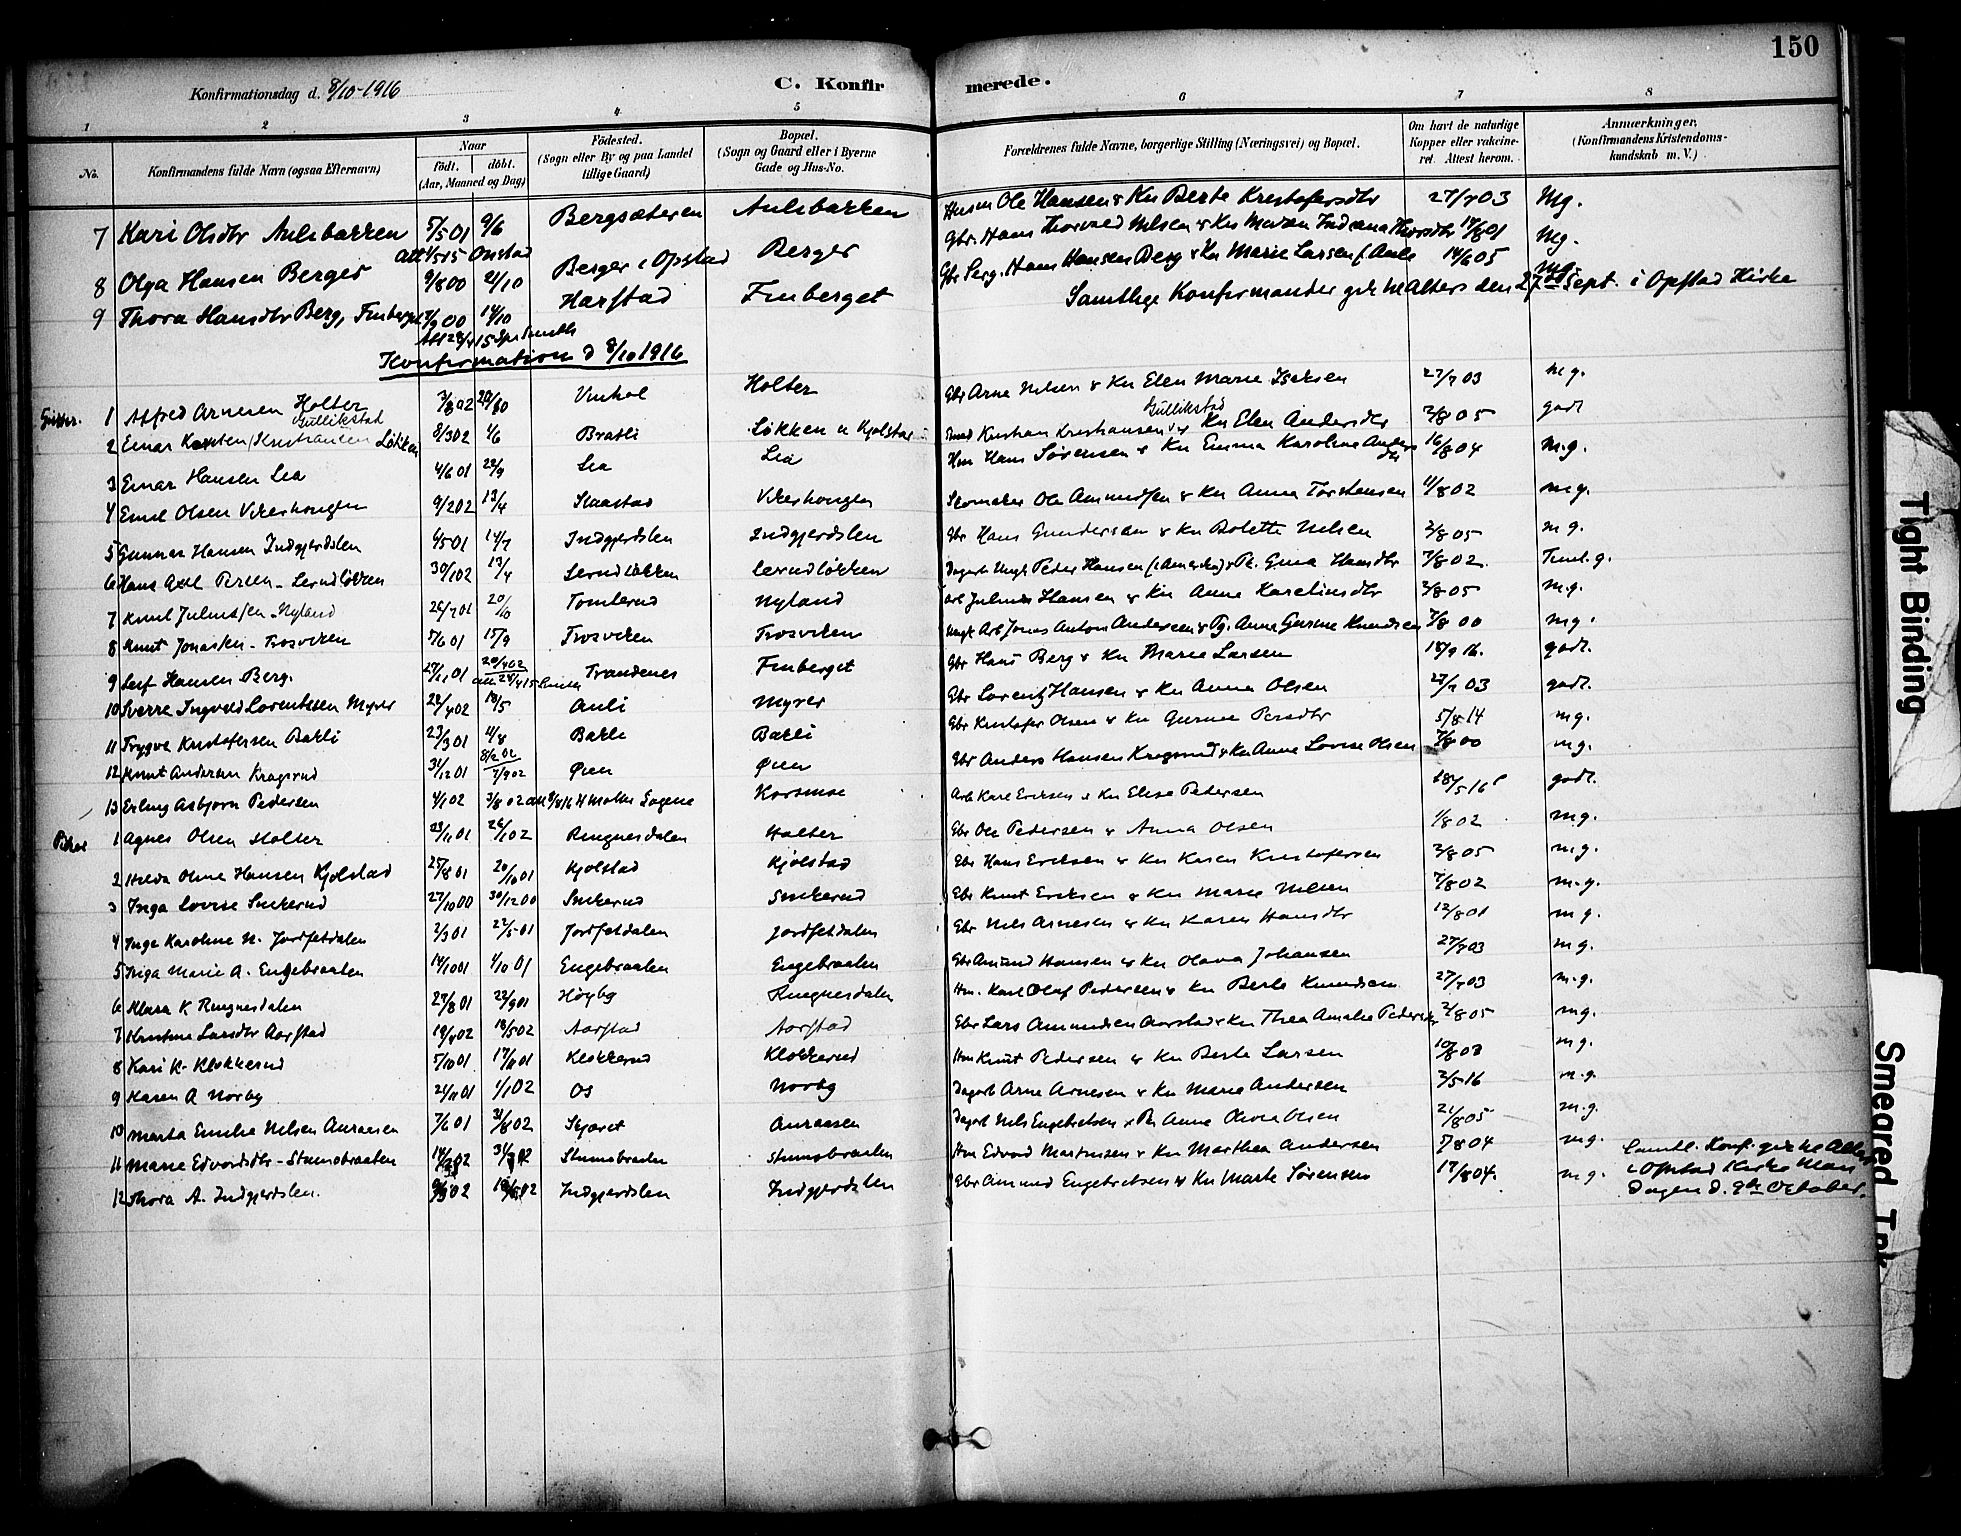 150
Konfirmationsdag d. 8/10-1916
C. Konfir merede.
1 2 3 4 5 6 7 8
No.
Konfirmandens fulde Navn (ogsaa Efternavn)
Naar
født. døbt.
(Aar, Maaned og Dag)
Fødested.
(Sogn eller By og paa Landet
tillige Gaard)
Bopæl.
(Sogn og Gaard eller i Byerne
Gade og Hus-No.
Forældrenes fulde Navne, borgerlige Stilling (Næringsvei) og Bopæl.
Om havt de naturlige
Kopper eller vakcine-
ret. Attest herom.
Anmærkninger.
(Konfirmandens Kristendoms-
kundskab m. V.)
7 Kari Olsdtr Aulibakken 5/5 01 9/6 Bergsæteren Aulibakken Husm Ole Hansen & Kn Berte Kristofersdtr 27/7 03 Mg.
8 Olga Hansen Berger 9/8 00 21/10 Berger i Opstad Berger Gbr. Hans Thorvald Nilsen & Kn Maren 17/8 01 Mg.
9 Thora Hansdtr Berg, Finberget 14/10 Harstad Finberget Gbr Serg. Hans Hansen Berg & Kn Marie Larsen 14/6 05 mg.
Samtlige Konfirmander gik til Alters den 27de Sept. i Opstad Kirke
Konfirmation d 8/10 1916
Gutter. 1 Alfred Arnesen Holter 3/8 02 Holter Gbr Arne Nilsen & Kn Elen Marie Isaksen 27/7 03 m.g.
Gullikstad Gullikstad
2 Einar Karsten Kristiansen Løkken 8/3 02 4/6 Bratli Løkken u Kjølstad Kristian Kristiansen & Kn Elen Andersdtr 2/8 05 godt
3 Einar Hansen Lia 4/6 01 29/9 Lia Lia Hm Hans Sørensen & Kn Emma Karoline Andersdtr 16/8 04 m.g.
4 Emil Olsen Vikerhaugen 9/2 02 13/4 Skaastad Vikerhaugen Skomaker Ole Amundsen & Kn Anna Torstensen 11/8 02 m.g.
5 Gunnar Hansen Indgjerdslen 6/5 01 14/7 Indgjerdslen Indgjerdslen Gbr Hans Gundersen & Kn Bolette Nilsen 2/8 05 m g.
6 Hans Axel Persen - Lerudløkken 30/1 02 13/4 Lerudløkken Lerudløkken Dagarb Ungk Peder Hansen (i Amerika) & Pk. Gina Hansdtr 7/8 02. Teml. g.
7 Knut Juliussen - Nyland 26/7 01 20/10 Tomterud Nyland Arb Julius Hansen & Kn Anne Karelinsdtr 2/8 05 m.g.
8 Knut Jonassen - Trosviken 5/6 01 15/9 Trosviken Trosviken Ungk Arb Jonas Anton Andersen & Pg. Anne Gurine Knudsen 7/8 00 m.g.
9 Leif Hansen Berg. 27/11 01 Trandenes Finberget Gbr Hans Berg & Kn Marie Larsen 18/9 16. godt.
10 Sverre Ingvald Lorentzen Myrer 26/4 02 18/5 Auli Myrer Gbr Lorentz Hansen & Kn Anna Olsen 27/7 03 godt.
11 Trygve Kristofersen Bakli 23/3 01 4/8 Bakli Bakli Gbr Kristofer Olsen & Kn Gurine Persdtr 5/8 14 m.g.
12 Knut Andersen Kragsrud 31/12 01 Øien Øien Gbr Anders Hansen Kragsrud & Kn Anne Lovise Olsen 7/8 00 m.g.
13 Erling Asbjørn Pedersen 4/1 02 3/8 02 Korsmoe Arb Karl Eriksen & Kn Elise Pedersen 18/5 16 godt.
Piker 1 Agnes Olsen Holter 29/11 01 26/1 02 Ringnesdalen Holter Gbr Ole Pedersen & Anna Olsen 1/8 02 m.g.
2 Hilda Oline Hansen Kjølstad 25/8 01 20/10 01 Kjølstad Kjølstad Gbr Hans Eriksen & Kn Karen Kristofersen 2/8 05 m.g.
3 Inga Lovise Snikerud 27/10 00 30/12 00 Snikerud Snikerud Gbr Knut Eriksen & Kn Marie Nilsen 7/8 02 m.g.
4 Inga Karoline N. Jordfetdalen 2/3 01 27/5 01 Jordfetdalen Jordfetdalen Gbr Nils Arnesen & Kn Karen Hansdtr 12/8 01 m.g.
5 Inga Marie A. Engebraaten 14/10 01 1/10 01 Engebraaten Engebraaten Gbr Amund Hansen & Kn Olava Johansen 27/7 03 m.g.
6 Klara K Ringnesdalen 27/8 01 22/9 01 Høyby Ringnesdalen Hm. Karl Olaf Pedersen & Kn Berte Knudsen 27/7 03 m.g.
7 Kristine Larsdtr Aarstad 19/4 02 18/5 02 Aarstad Aarstad Gbr Lars Amundsen Aarstad & Kn Thea Amalie Pedersdtr 2/8 05 m.g.
8 Kari K. Klokkerud 5/10 01 17/11 01 Klokkerud Klokkerud Hm Knut Pedersen & Kn Berte Larsen 10/8 03 m.g.
9 Karen A Norby 21/11 01 1/1 02 Os Norby Dagarb Arne Arnesen & Kn Marie Andersen 2/5 16 m.g.
10 Marta Emilie Nilsen Auraasen 7/6 01 31/8 02 Skjæret Auraasen Dagarb Nils Engebretsen & Kn Anne Olivia Olsen 21/8 05 m.g.
11 Marie Edvardsdtr - Stumsbraaten Stumsbraaten Stumsbraaten Hm Edvard Martinsen & Kn Marthea Andersen 7/8 04 m.g.
12 Thora A. Indgjerdslen. Indgjerdslen Indgjerdslen Gbr Amund Engebretsen & Kn Marte Sørensen 17/8 04. m.g.
Samtl. Konf. gik til Alters
i Opstad Kirke Man
dagen d. 9de October.
Tight Binding
Smeared